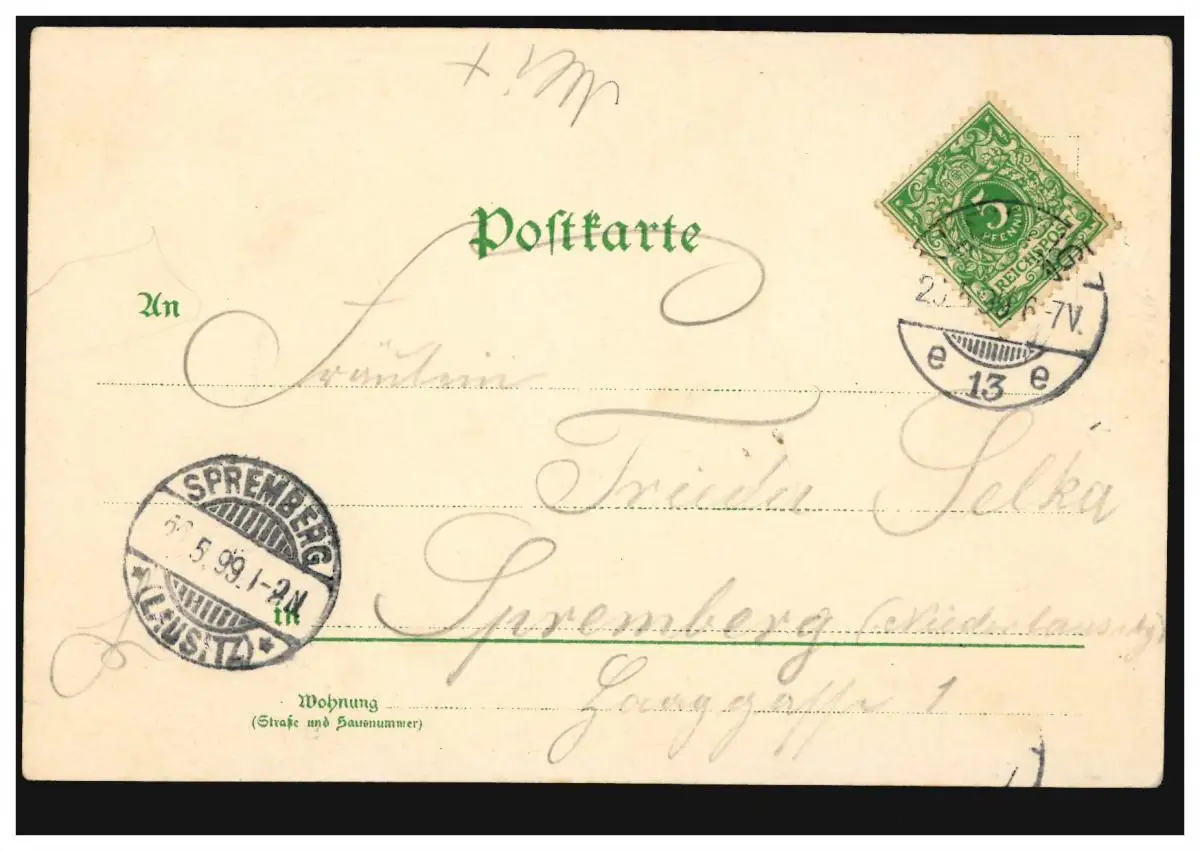 Postkarte
5
PFENNIG
REICHSPOST
6-7N.
e 13 e
An
Fräulein
Frieda Selka
SPREMBERG
5.99.1-2N
* (LAUSITZ) *
in
Spremberg (Niederlausitz)
Wohnung
(Straße und Hausnummer)
1